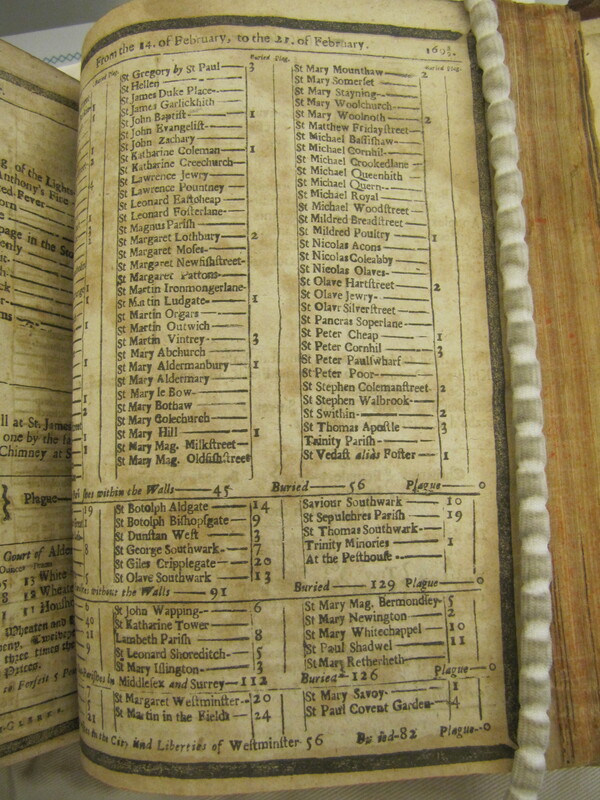 From the 14. of February, to the 21. of February. 169
Buried Plag.
Buried Plag.
St Gregory by St Paul 3
St Hellen
St James Duke Place
St James Garlickhith
St John Baptist 1
St John Evangelist
St John Zachary
St Katharine Coleman 1
St Katharine Creechurch
St Lawrence Jewry
St Lawrence Pountney
St Leonard Eastcheap
St Leonard Fosterlane
St Magnus Parish
St Margaret Lothbury 2
St Margaret Moses
St Margaret Newfishstreet
St Margaret Pattons
St Martin Ironmongerlane
St Martin Ludgate 1
St Martin Orgars
St Martin Outwich
St Martin Vintrey 3
St Mary Abchurch
St Mary Aldermanbury 1
St Mary Aldermary
St Mary le Bow
St Mary Bothaw
St Mary Colechurch
St Mary Hill 1
St Mary Mag. Milkstreet
St Mary Mag. Oldfishstreet
St Mary Mounthaw 2
St Mary Somerset
St Mary Stayning
St Mary Woolchurch
St Mary Woolnoth 2
St Matthew Fridaystreet
St Michael Bassishaw
St Michael Cornhil
St Michael Crookedlane
St Michael Queenhith
St Michael Quern
St Michael Royal
St Michael Woodstreet
St Mildred Breadstreet
St Mildred Poultry 1
St Nicolas Acons
St Nicolas Coleabby
St Nicolas Olaves
St Olave Hartstreet 2
St Olave Jewry
St Olave Silverstreet
St Pancras Soperlane
St Peter Cheap 1
St Peter Cornhil 3
St Peter Paulswharf
St Peter Poor
St Stephen Colemanstreet 2
St Stephen Walbrook
St Swithin 2
St Thomas Apostle 3
Trinity Parish
St Vedast alias Foster 1
within the Walls 45 Buried 56 Plague 0
St Botolph Aldgate 14
St Botolph Bishopsgate 9
St Dunstan West 3
St George Southwark 7
St Giles Cripplegate 20
St Olave Southwark 13
Saviour Southwark 10
St Sepulchres Parish 19
St Thomas Southwark
Trinity Minories 1
At the Pesthouse
without the Walls 91 Buried 129 Plague 0
St John Wapping 6
St Katharine Tower
Lambeth Parish 8
St Leonard Shoreditch 5
St Mary Islington 3
St Mary Mag. Bermondsey 5
St Mary Newington 2
St Mary Whitechappel 10
St Paul Shadwel 11
St Mary Retherheth
Middlesex and Surrey 112 Buried 126 Plague 0
St Margaret Westminster 20
St Martin in the Fields 24
St Mary Savoy 1
St Paul Covent Garden 4
in the City and Liberties of Westminster 56 Buried 82 Plague 0